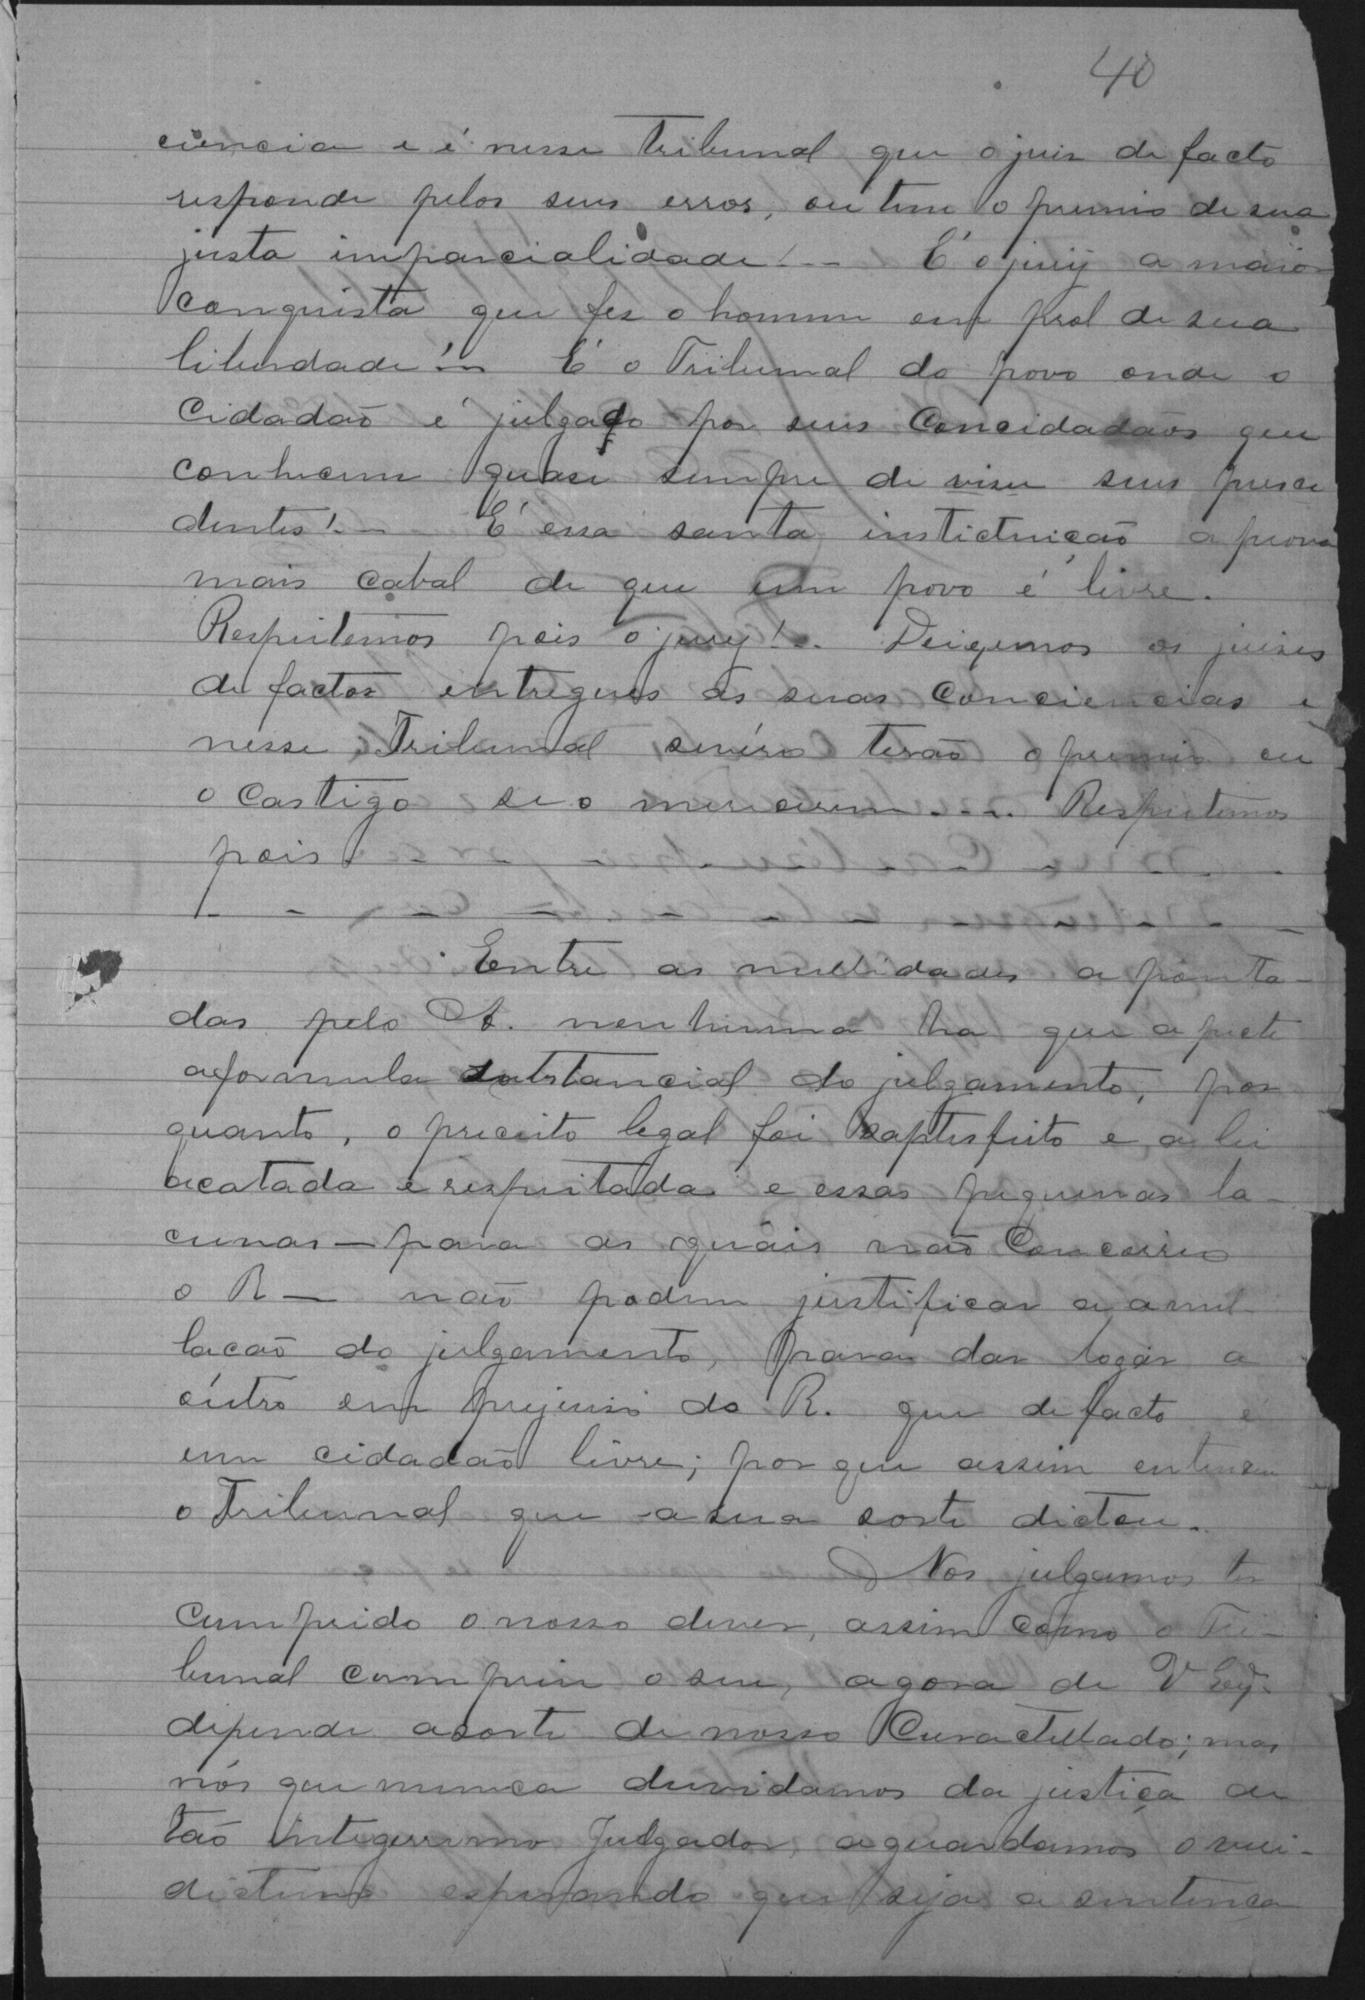 40
ciencia e é nesse Tribunal que o juis de facto
responde pelos seus erros, ou tem o premio de sua
justa imparcialidade! — É o jury a maior
conquista que fez o homem em prol de sua
liberdade! — É o Tribunal do povo onde o
Cidadão é julgado por seus Concidadãos que
conhecem quase sempre de visu seus prece
dentes! — É essa santa instictuição a prova
mais cabal de que um povo é livre.
Respeitemos pois o jury!.. Deixemos os juises
de factos entregues as suas Conciencias e
nesse Tribunal sevéro terão o premio ou
o Castigo se o merecerem.... Respeitemos
pois. - - - - - - - - - -
- - - - - - - - - -
Entre as nullidades aponta-
das pelo A. nenhuma ha que afecte
a formula substancial do julgamento, por
quanto, o preceito legal foi saptisfeito e a lei
acatada e respeitada e essas pequenas la-
cunas — para as quáis não Concorreu
o R — não podem justificar a anul-
lacão do julgamento, para dar logár a
oútro em prejuiso do R. que de facto é
um cidadão livre; por que assim entendeu
o Tribunal que a sua sorte dictou.
Nos julgamos ter
Cumprido o nosso dever, assim como o Tri-
bunal cumpriu o seu, agora de V Exª.
depende a sorte de nosso Curactellado; mas
nós que nunca duvidamos da justiça de
tão integerrimo Julgador aguardamos o vere-
dictum esperando que seja a sentença